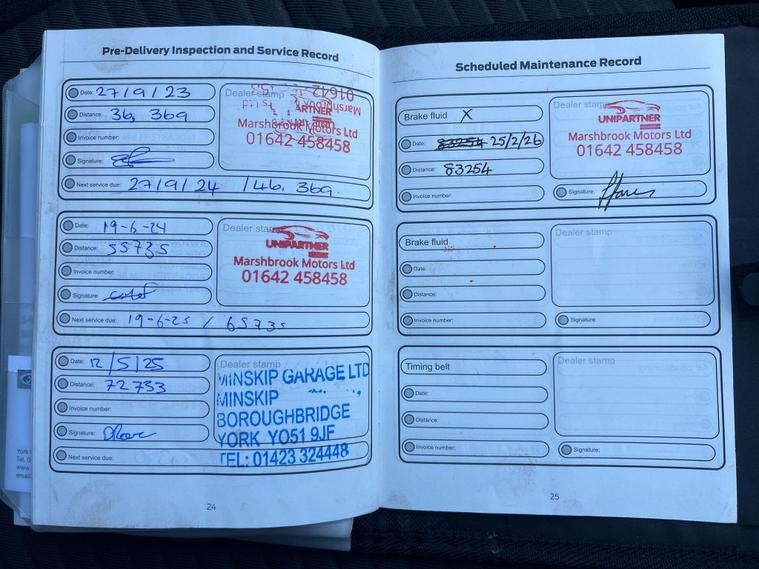 Pre-Delivery Inspection and Service Record
Date: 27/9/23
Distance: 36,369
Invoice number:
Signature:
Next service due: 27/9/24 /46,369.
Dealer stamp
01642
Marshbrook
ARTNER
Marshbrook Motors Ltd
01642 458458
Date: 19-6-24
Distance: 55735
Invoice number:
Signature:
Next service due: 19-6-25 / 65735
Dealer stamp
UNIPARTNER
Marshbrook Motors Ltd
01642 458458
Date: 12/5/25
Distance: 72733
Invoice number:
Signature:
Next service due:
Dealer stamp
MINSKIP GARAGE LTD
MINSKIP
BOROUGHBRIDGE
YORK YO51 9JF
TEL: 01423 324448
24
Scheduled Maintenance Record
Brake fluid X
Date: 83254 25/2/26
Distance: 83254
Invoice number:
Dealer stamp
UNIPARTNER
Marshbrook Motors Ltd
01642 458458
Signature:
Brake fluid
Date:
Distance:
Invoice number:
Dealer stamp
Signature:
Timing belt
Date:
Distance:
Invoice number:
Dealer stamp
Signature:
25